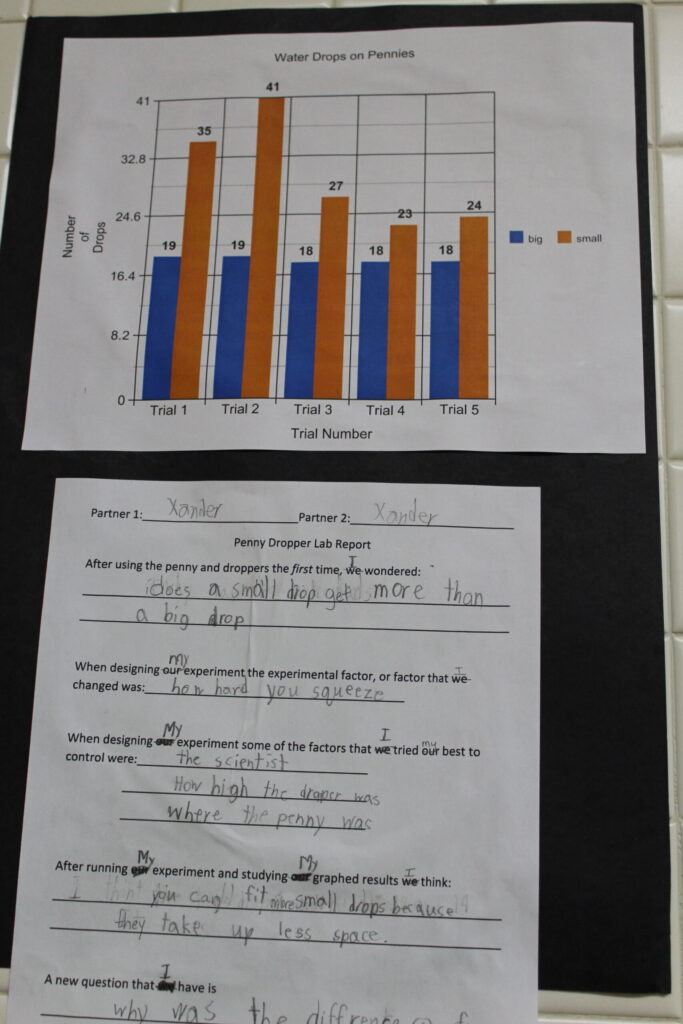 Water Drops on Pennies
41
41
35
32.8
27
24.6
24
23
19
19
18
18
18
16.4
8.2
0
Number
of
Drops
big
small
Trial 1
Trial 2
Trial 3
Trial 4
Trial 5
Trial Number
Partner 1: Xander Partner 2: Xander
Penny Dropper Lab Report
I
After using the penny and droppers the first time, we wondered:
does a small drop get more than
a big drop
my I
When designing our experiment the experimental factor, or factor that we
changed was: how hard you squeeze
My I my
When designing our experiment some of the factors that we tried our best to
control were: the scientist
How high the draper was
where the penny was
My My I
After running our experiment and studying our graphed results we think:
I think you can fit more small drops because
they take up less space.
I
A new question that have is
why was the diffrence